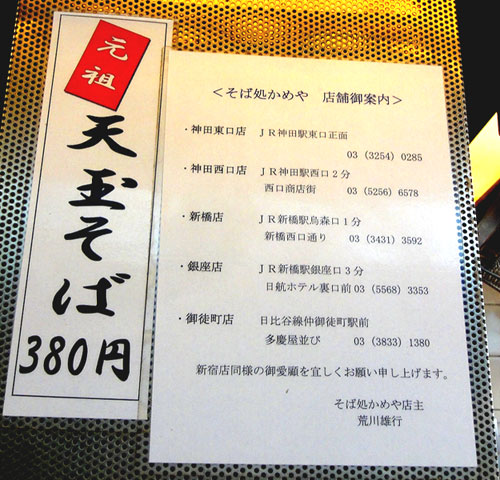 元祖
天玉そば
380円
＜そば処かめや　店舗御案内＞
・神田東口店　ＪＲ神田駅東口正面
03（3254）0285
・神田西口店　ＪＲ神田駅西口２分
西口商店街　03（5256）6578
・新橋店　ＪＲ新橋駅烏森口１分
新橋西口通り　03（3431）3592
・銀座店　ＪＲ新橋駅銀座口３分
日航ホテル裏口前 03（5568）3353
・御徒町店　日比谷線仲御徒町駅前
多慶屋並び　03（3833）1380
新宿店同様の御愛顧を宜しくお願い申し上げます。
そば処かめや店主
荒川雄行